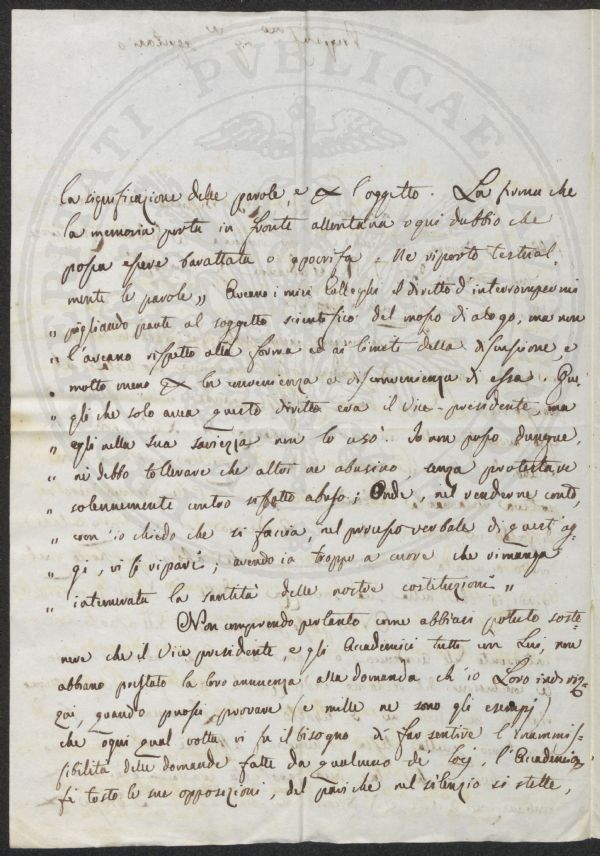 PERITATI PVBLICAE
la significazione delle parole, e & l'oggetto. La firma che
la memoria porta in fronte allontana ogni dubbio che
possa essere barattata o apocrifa. Ne riporto testual-
mente le parole „ Aveano i miei Colleghi il diritto d'interrompermi
„ pigliando parte al soggetto scientifico del mosso dialogo; ma non
„ l'aveano rispetto alla forma ed ai limiti della discussione, e
„ molto meno & la convenienza e disconvenienza di essa. Que-
gli che solo avea questo diritto era il Vice-presidente, ma
„ egli nella sua saviezza non lo usò. Io non posso dunque,
„ nè debbo tollerare che altri ne abusino, senza protestare
„ solennemente contro siffatto abuso; Onde, nel renderne conto,
„ com'io chiedo che si faccia, nel processo verbale di quest'og-
„ gi, vi si ripari; avendo io troppo a cuore che rimanga
„ intemerata la santità delle nostre costituzioni „
Non comprendo pertanto come abbiasi potuto soste-
nere che il Vice presidente, e gli Accademici tutti con Lui, non
abbano prestato la loro annuenza alla domanda ch'io Loro indiriz-
zai, quando possi provare (e mille ne sono gli esempj)
che ogni qual volta vi fu il bisogno di far sentire l'inammis-
sibilità delle domande fatte da qualcuno de' Socj, l'Accademia
fè tosto le sue opposizioni, del pari che nel silenzio si stette,